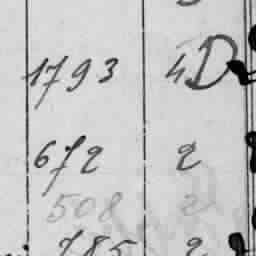 1793 4D
672 2
508 2
785 2